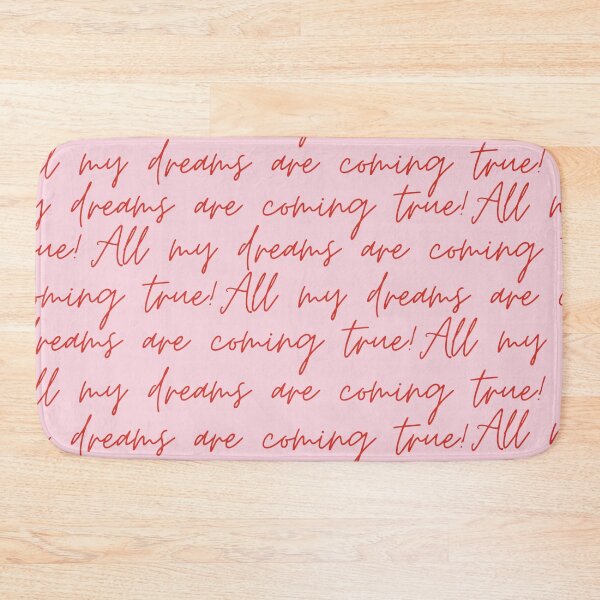 ll my dreams are coming true!
y dreams are coming true! All m
ue! All my dreams are coming
oming true! All my dreams are c
dreams are coming true! All my
ll my dreams are coming true!
dreams are coming true! All m